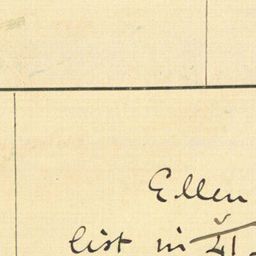 Ellen
list in 21